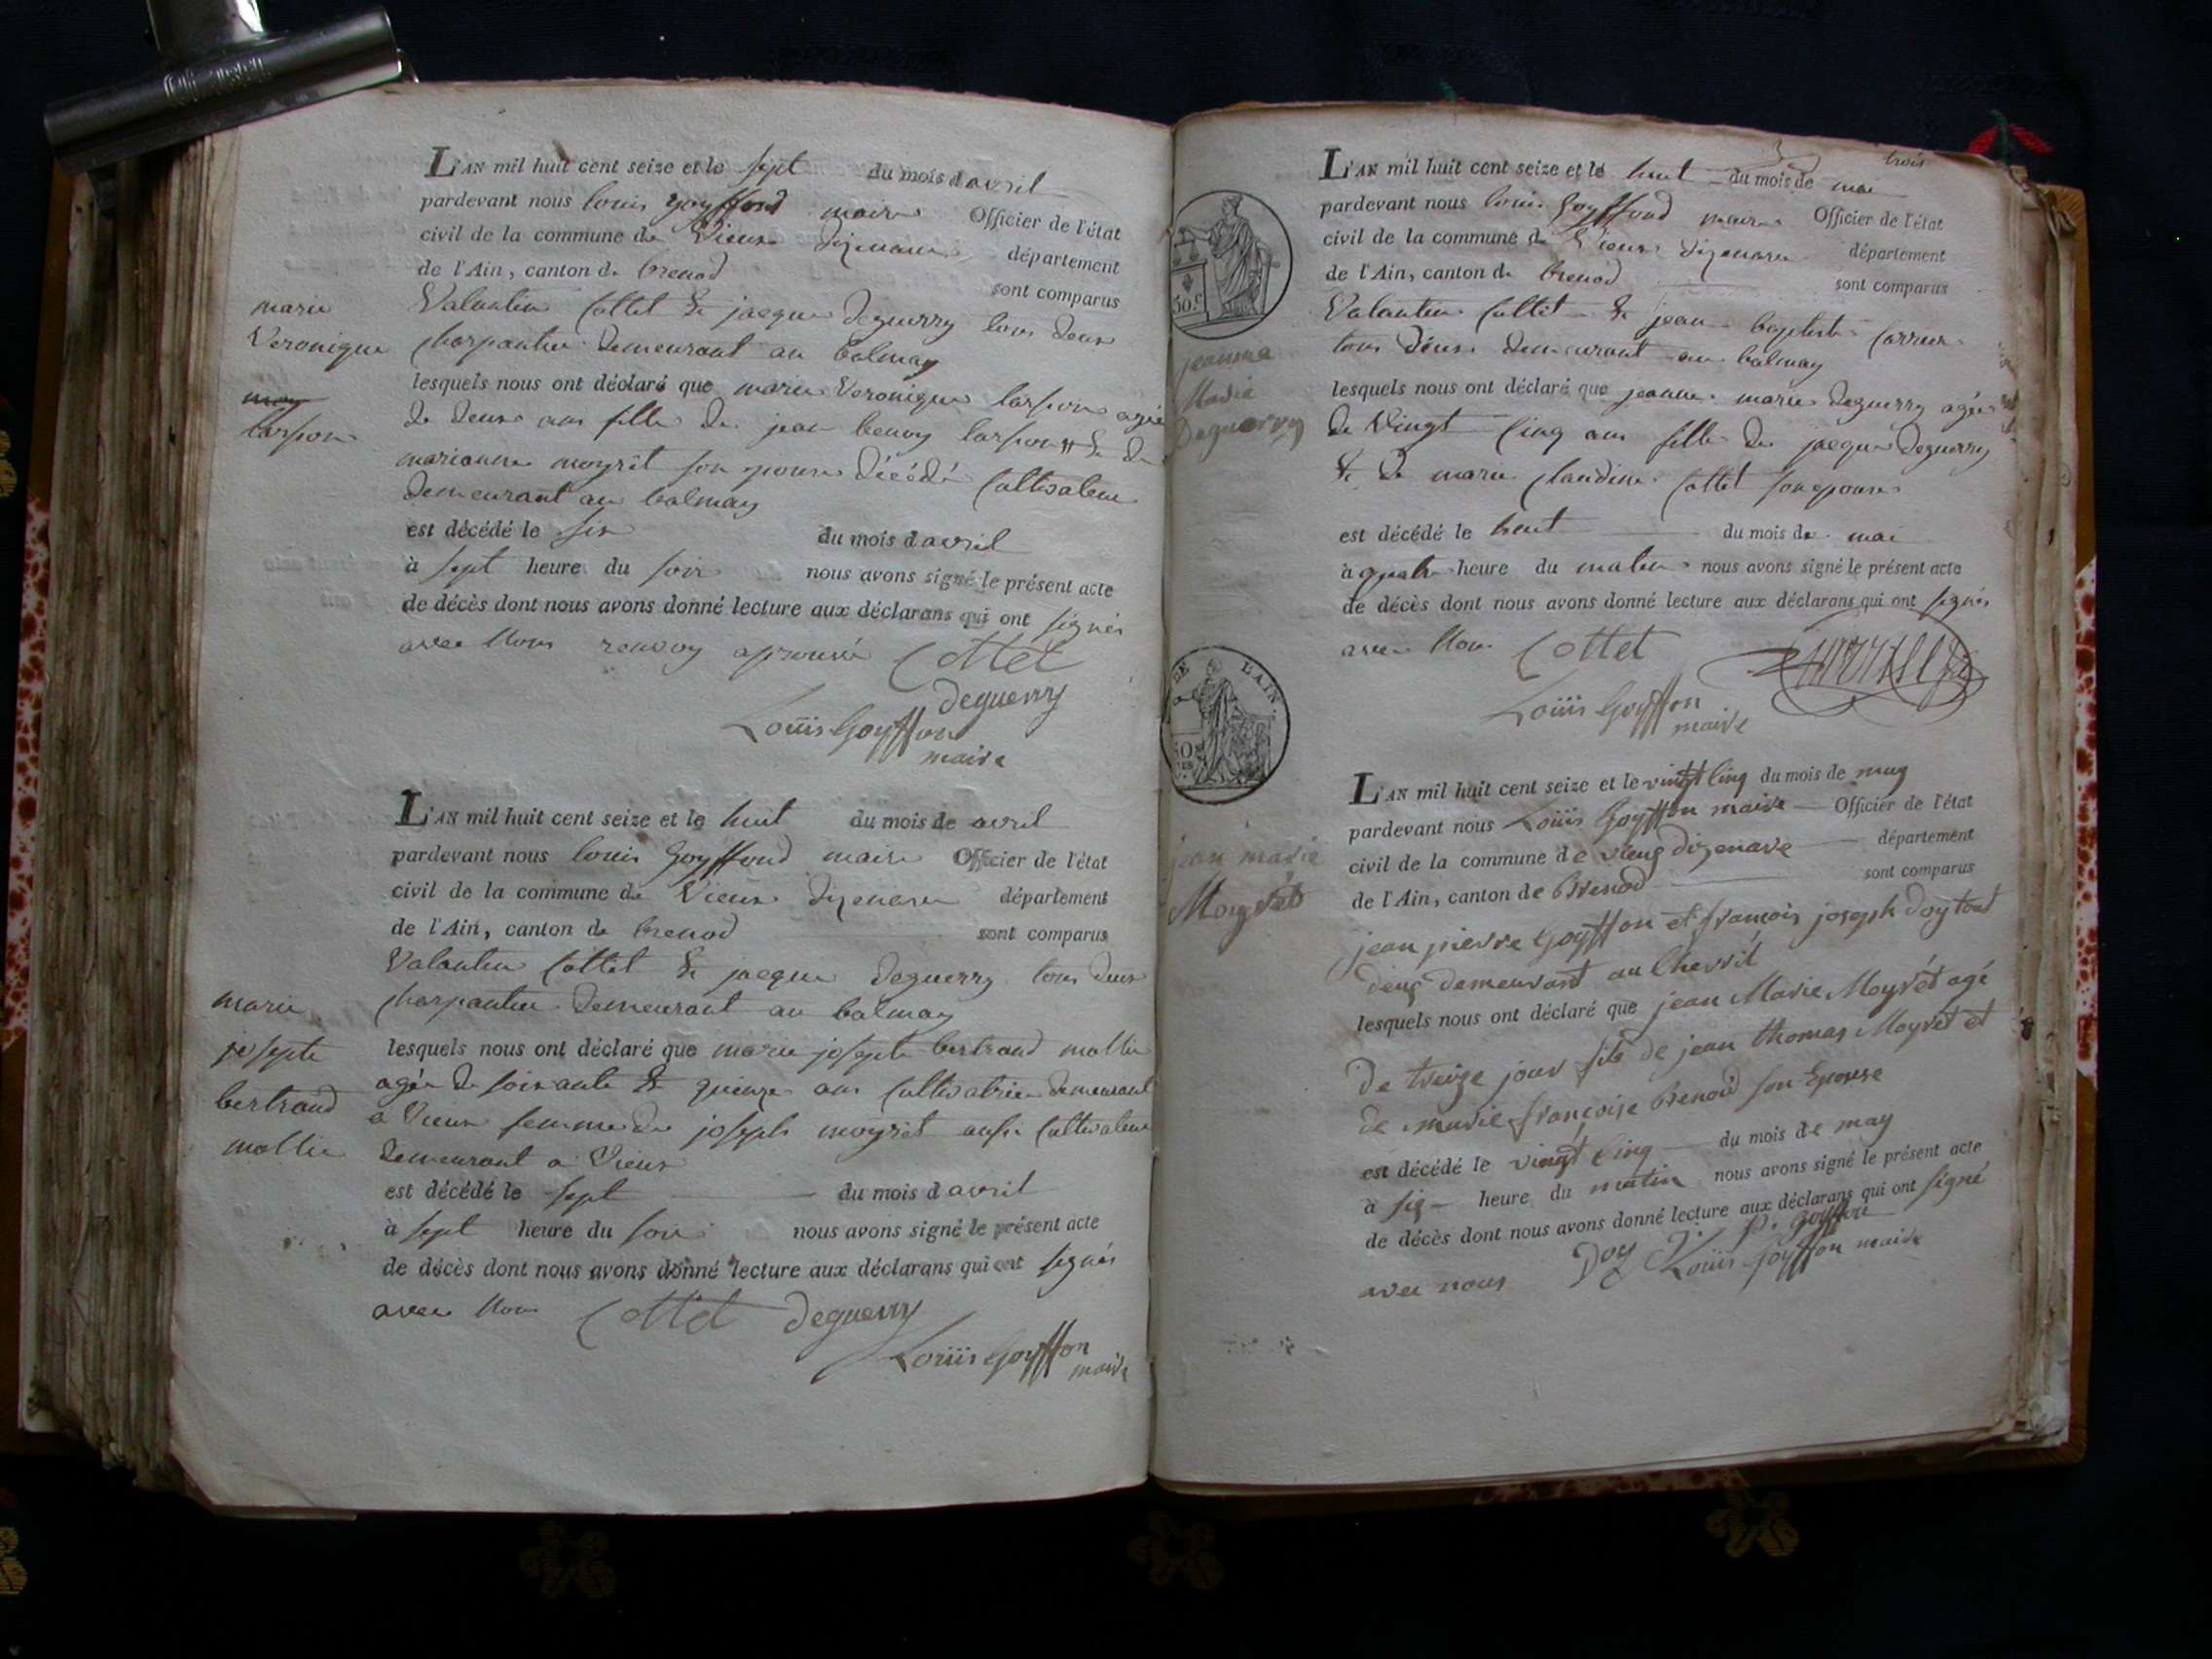 L'AN mil huit cent seize et le sept du mois d avril
pardevant nous louis goyffond maire Officier de l'état
civil de la commune de Vieux dizenave département
de l'Ain, canton de brenod sont comparus
Valantin Cottet & jacque deguerry tous deux
charpantier demeurant au balmay
lesquels nous ont déclaré que marie Veronique larpin agée
de deux ans fille de jean benoy & de
marianne moyret son epouse décédé Cultivateur
demeurant au balmay
est décédé le six du mois d avril
à sept heure du soir nous avons signé le présent acte
de décès dont nous avons donné lecture aux déclarans qui ont signés
avec Nous renvoy aprouvé Cottet
deguerry
Loüis Goyffon
maire
marie
Veronique
L'AN mil huit cent seize et le huit du mois de avril
pardevant nous louis goyffond maire Officier de l'état
civil de la commune de Vieux dizenave département
de l'Ain, canton de brenod sont comparus
Valantin Cottet & jacque deguerry tous deux
charpantier demeurant au balmay
lesquels nous ont déclaré que marie josepte bertrand mollie
agée de soixante & quinze ans Cultivatrice demeurant
a Vieux femme de joseph moyret aussi Cultivateur
demeurant a Vieux
est décédé le sept du mois d avril
à sept heure du soir nous avons signé le présent acte
de décès dont nous avons donné lecture aux déclarans qui ont signés
avec Nous Cottet deguerry
Loüis Goyffon
maire
marie
josepte
bertrand
mollie
trois
L'AN mil huit cent seize et le huit du mois de mai
pardevant nous louis goyffond maire Officier de l'état
civil de la commune de Vieux dizenave département
de l'Ain, canton de brenod sont comparus
Valantin Cottet & jean baptiste Carrier
tous deux demeurant au balmay
lesquels nous ont déclaré que jeanne marie deguerry agée
de Vingt Cinq ans fille de jacque deguerry
& de marie Claudine Cottet son epouse
est décédé le huit du mois de mai
à quatre heure du matin nous avons signé le présent acte
de décès dont nous avons donné lecture aux déclarans qui ont signés
avec Nous Cottet
Loüis Goyffon
maire
50.c
jeanne
Marie
Deguerry
DE L'AIN.
L'AN mil huit cent seize et le vingt Cinq du mois de may
pardevant nous Loüis Goyffon maire Officier de l'état
civil de la commune de vieug dizenave département
de l'Ain, canton de Brenod sont comparus
jean pierre Goyffon et françois joseph doy tout
deug demeurant au Chevril
lesquels nous ont déclaré que jean Marie Moyrét agé
de treize jour fils de jean thomas Moyret et
de marie françoise Brenod son Epouse
est décédé le vingt Cinq du mois de may
à sig heure du matin nous avons signé le présent acte
de décès dont nous avons donné lecture aux déclarans qui ont signé
avec nous Doy J. P. Goyffon
Loüis Goyffon maire
jean marie
Moyret